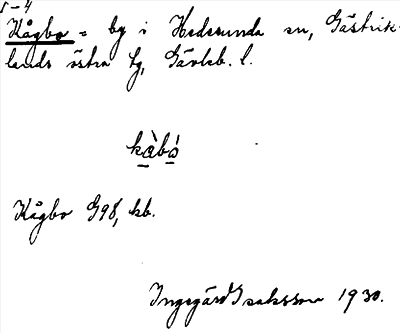 5-4
Kågbo = by i Hedesunda sn, Gästrik-
lands östra tg, Gävleb. l.
kàbó
Kågbo G98, kb.
Ingegärd Isaksson 1930.